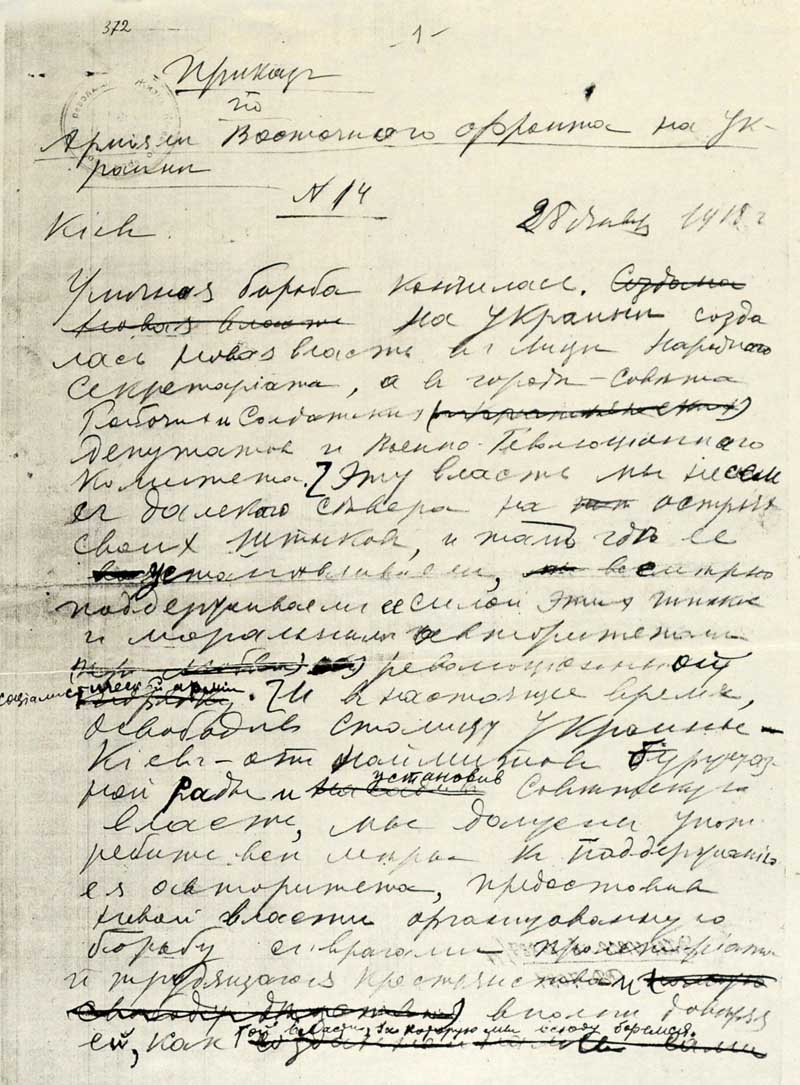 372
-1-
Приказъ
по
Армiям Восточного фронта на Ук-
раини
N 14
Кiев
28 Январ 1918 г
Уличная борьба кончилась. Создана
новая власть На Украини созда
лась новая власть в лици Народного
Секретарiата, а в городи - совѣта
Рабочих и Солдатских
депутатов и Военно-Революцiонного
комитета. [Эту власть мы несем
с далекаго сѣвера на остриях
своих штыков, и тамъ гдѣ ее
устанавливаем,
поддерживаем ее силой этих штыков
и моральным авторитетом
революцiонной
социалистической армiи. [И в настоящее время,
освободив столицу Украины -
Кiев - от наймитов буржуаз
ной рады и установив Совѣтскую
власть, мы должны упот
ребить все мѣры к поддержанiю
ея авторитета, предоставив
новой власти организованную
борьбу с врагами пролетарiата
и трудящагося крестьянства и
вполнѣ довѣряя
ей, как той власти, за которую мы всюду боремся.